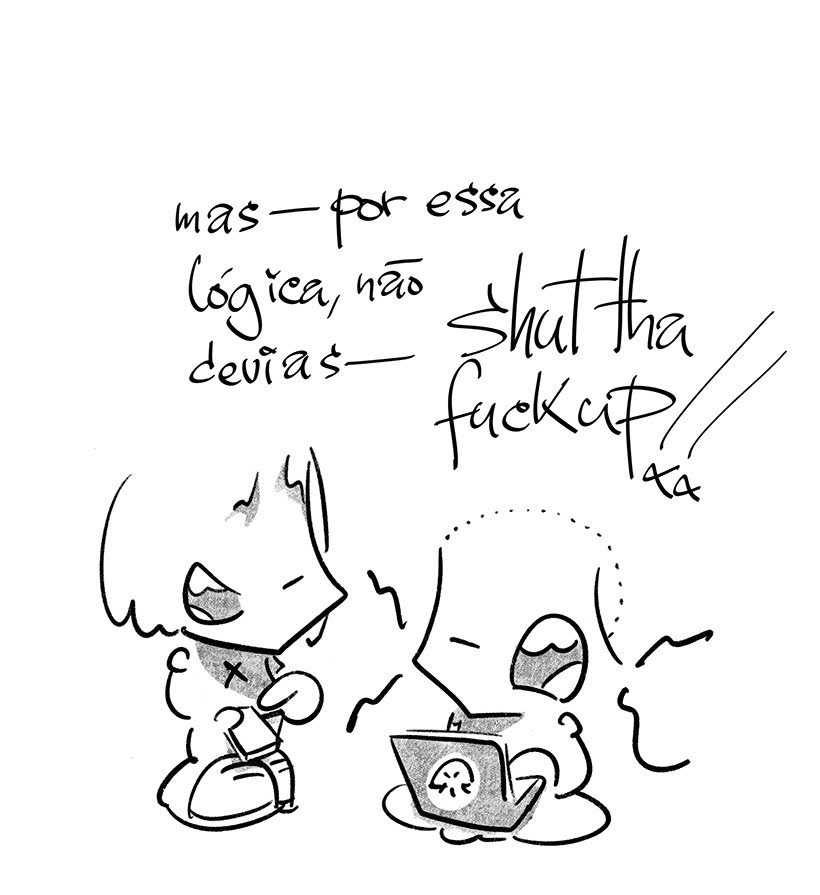 mas—por essa
lógica, não
devias—
shut tha
fuck up